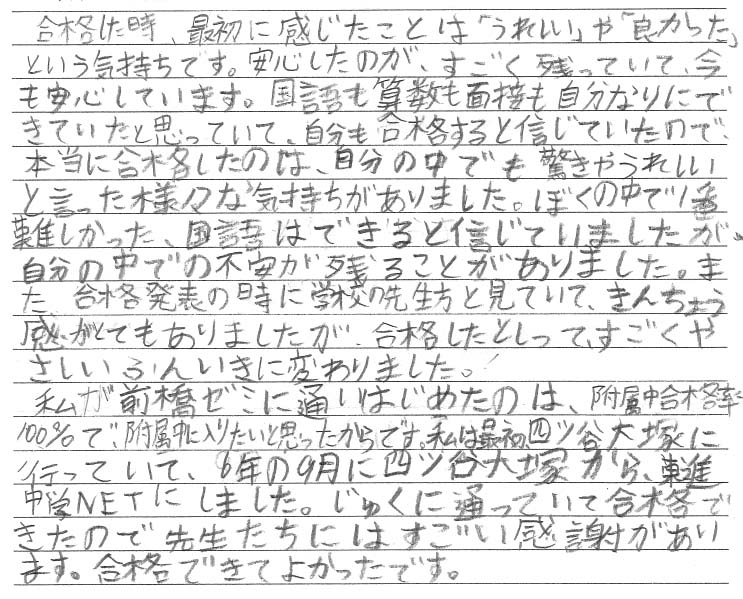 合格した時、最初に感じたことは「うれしい」や「良かった」
という気持ちです。安心したのが、すごく残っていて、今
も安心しています。国語も算数も面接も自分なりにで
きていたと思っていて、自分も合格すると信じていたので、
本当に合格したのは、自分の中でも驚きやうれしい
と言った様々な気持ちがありました。ぼくの中で1番
難しかった、国語はできると信じていましたが、
自分の中での不安が残ることがありました。ま
た、合格発表の時に学校の先生方と見ていて、きんちょう
感がとてもありましたが、合格したとしって、すごくや
さしいふんいきに変わりました。
私が前橋ゼミに通いはじめたのは、附属中合格率
100%で、附属中に入りたいと思ったからです。私は最初四ツ谷大塚に
行っていて、6年の9月に四ツ谷大塚から、東進
中学NETにしました。じゅくに通っていて合格で
きたので先生たちにはすごい感謝があり
ます。合格できてよかったです。